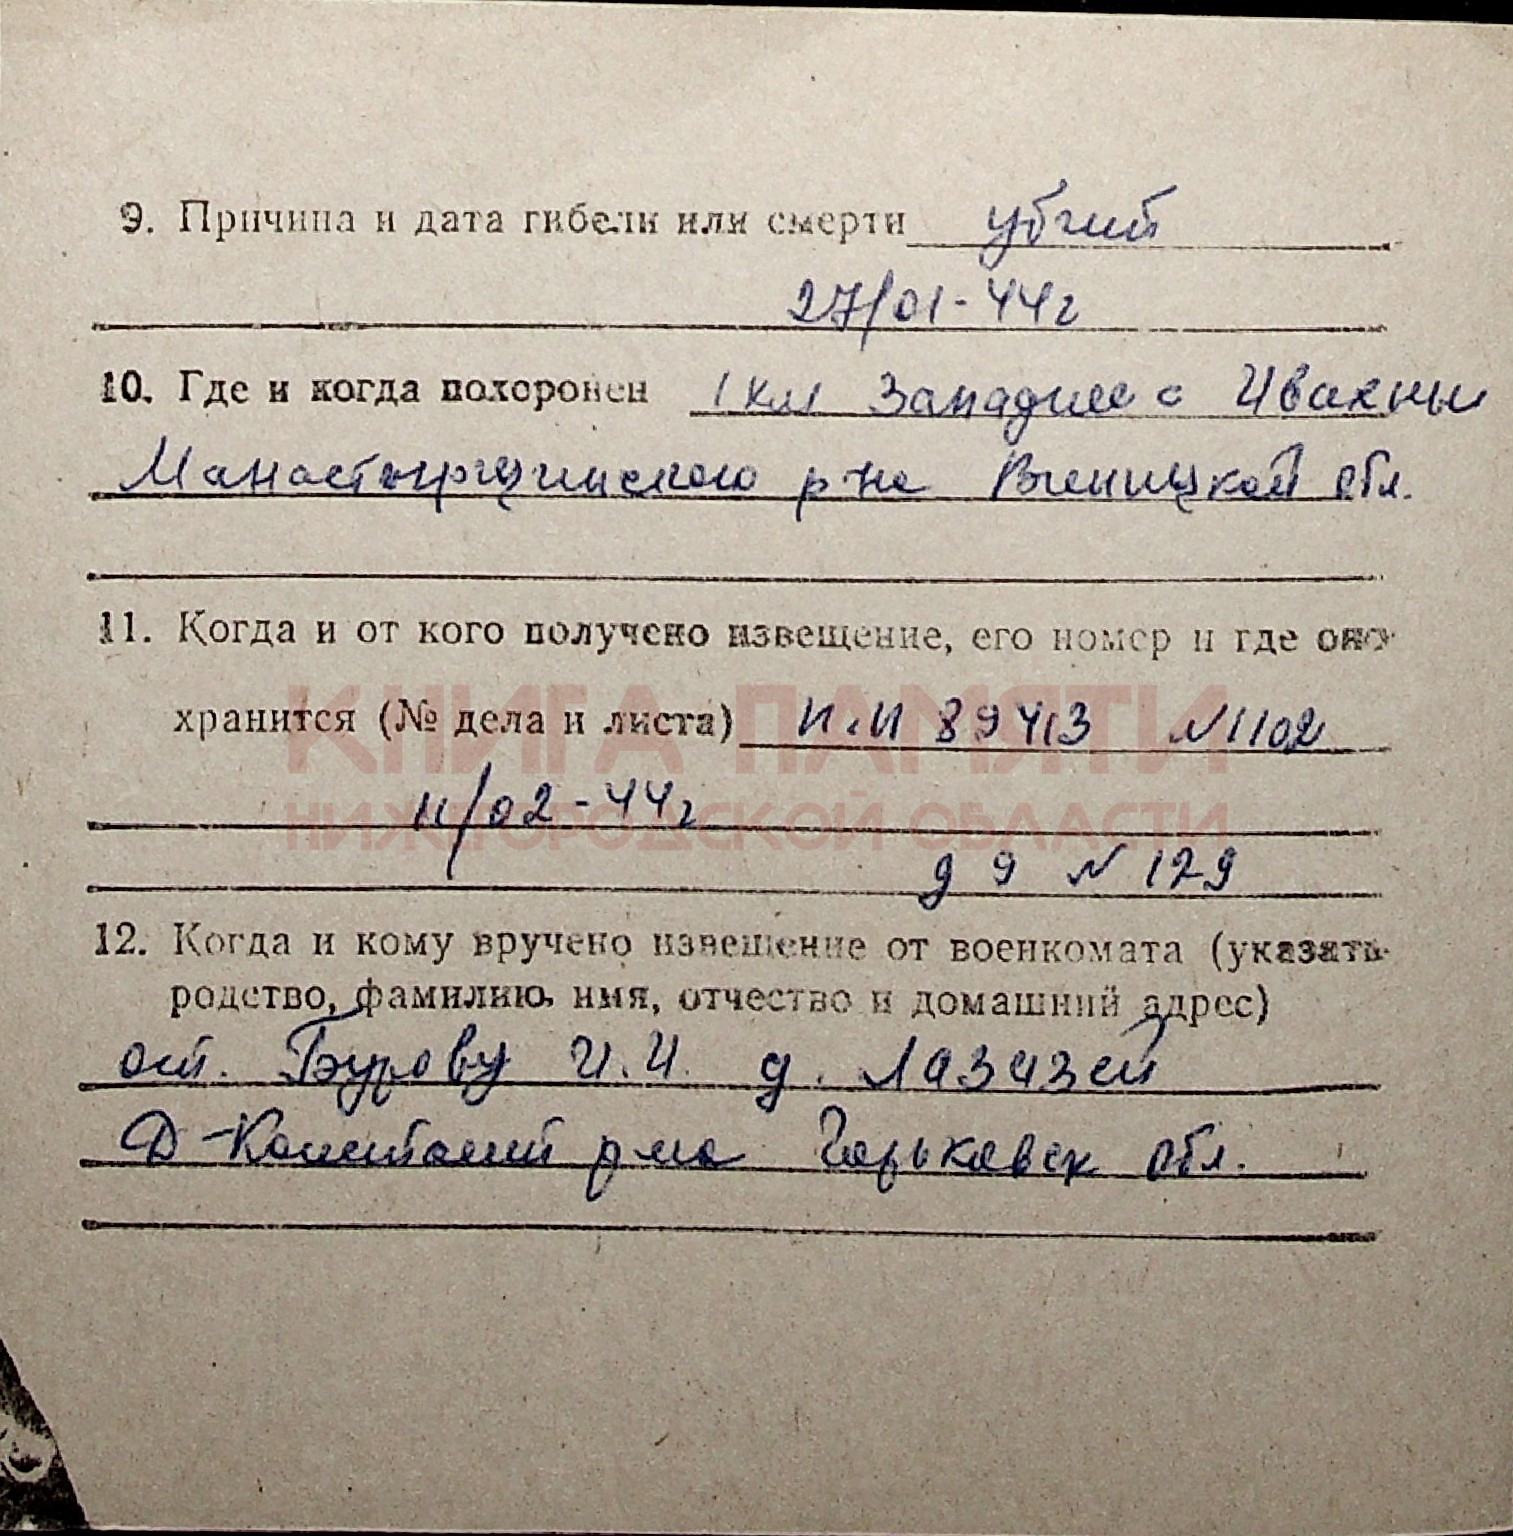 9. Причина и дата гибели или смерти убит
27/01-44г
10. Где и когда похоронен 1 км Западнее с Ивахны
Манастырищинского р-на Виницкой обл.
11. Когда и от кого получено извещение, его номер и где оно
хранится (№ дела и листа) И.И 89413 №1102
КНИГА ПАМЯТИ
11/02-44г
НИЖЕГОРОДСКОЙ ОБЛАСТИ
д 9 № 129
12. Когда и кому вручено извещение от военкомата (указать
родство, фамилию, имя, отчество и домашний адрес)
от. Бурову И.И. д. Лазазей
Д-Констант р-на Горьковск обл.